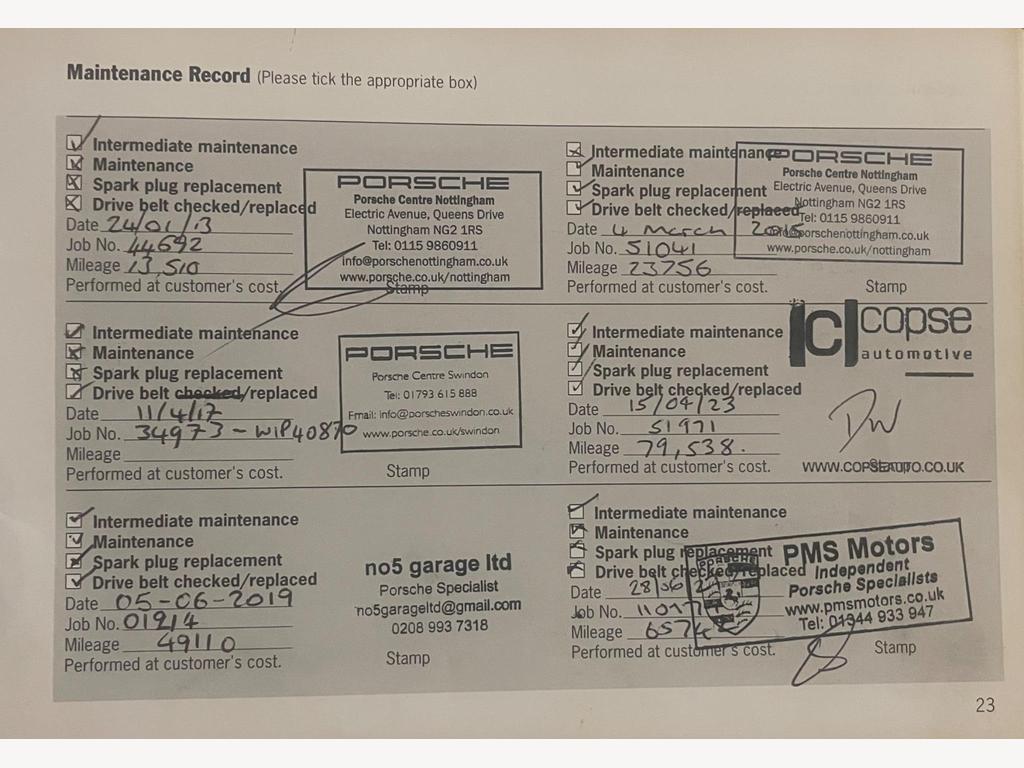 Maintenance Record (Please tick the appropriate box)
Intermediate maintenance
Maintenance
Spark plug replacement
Drive belt checked/replaced
Date 24/01/13
Job No. 44692
Mileage 13,510
Performed at customer's cost.
PORSCHE
Porsche Centre Nottingham
Electric Avenue, Queens Drive
Nottingham NG2 1RS
Tel: 0115 9860911
info@porschenottingham.co.uk
www.porsche.co.uk/nottingham
Stamp
Intermediate maintenance
Maintenance
Spark plug replacement
Drive belt checked/replaced
Date 4 March
Job No. 51041
Mileage 23756
Performed at customer's cost.
PORSCHE
Porsche Centre Nottingham
Electric Avenue, Queens Drive
Nottingham NG2 1RS
Tel: 0115 9860911
info@porschenottingham.co.uk
www.porsche.co.uk/nottingham
Stamp
Intermediate maintenance
Maintenance
Spark plug replacement
Drive belt checked/replaced
Date 11/4/17
Job No. 34973-WIP40870
Mileage
Performed at customer's cost.
PORSCHE
Porsche Centre Swindon
Tel: 01793 615 888
Email: info@porscheswindon.co.uk
www.porsche.co.uk/swindon
Stamp
Intermediate maintenance
Maintenance
Spark plug replacement
Drive belt checked/replaced
Date 15/04/23
Job No. 51971
Mileage 79,538.
Performed at customer's cost.
copse
automotive
DW
WWW.COPSEAUTO.CO.UK
Intermediate maintenance
Maintenance
Spark plug replacement
Drive belt checked/replaced
Date 05-06-2019
Job No. 01214
Mileage 49110
Performed at customer's cost.
no5 garage ltd
Porsche Specialist
no5garageltd@gmail.com
0208 993 7318
Stamp
Intermediate maintenance
Maintenance
Spark plug replacement
Drive belt checked/replaced
Date
Job No.
Mileage
Performed at customer's cost.
PORSCHE
PMS Motors
Independent
Porsche Specialists
www.pmsmotors.co.uk
Tel: 01344 933 947
Stamp
23